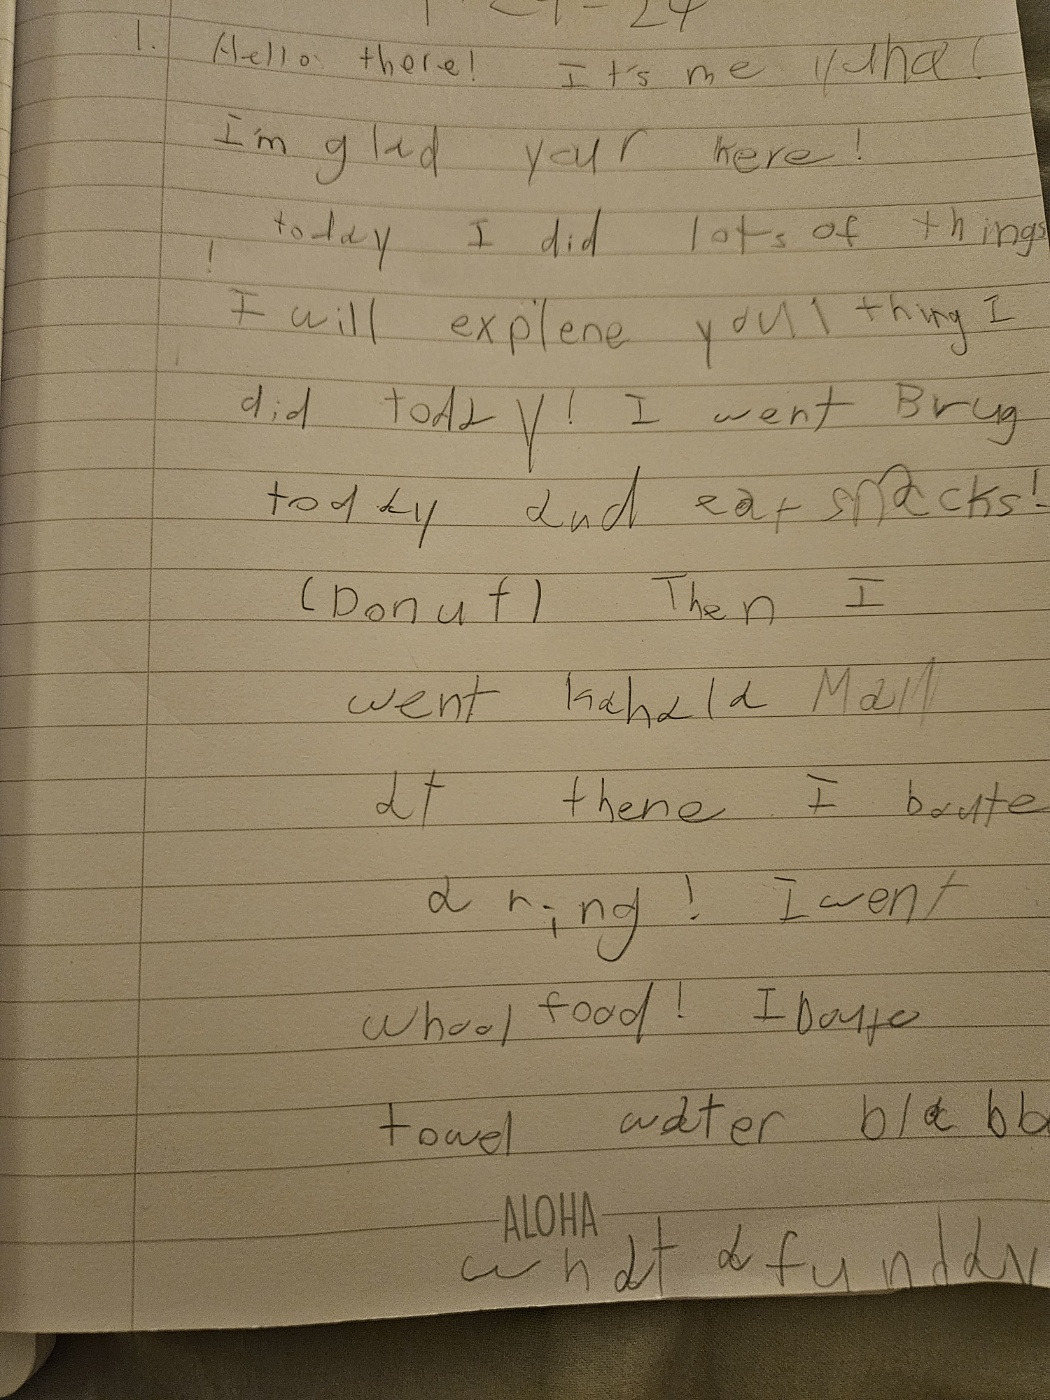 -24-24
1. Hello there! It's me yuna!
I'm glad your here!
today I did lots of things
!
I will explene youll thing I
did today! I went Brug
today and eat snacks!
(Donut) Then I
went kahala Mall
at there I boute
a ring! I went
whool food! I boute
towel water bla bb
ALOHA
what a fun day